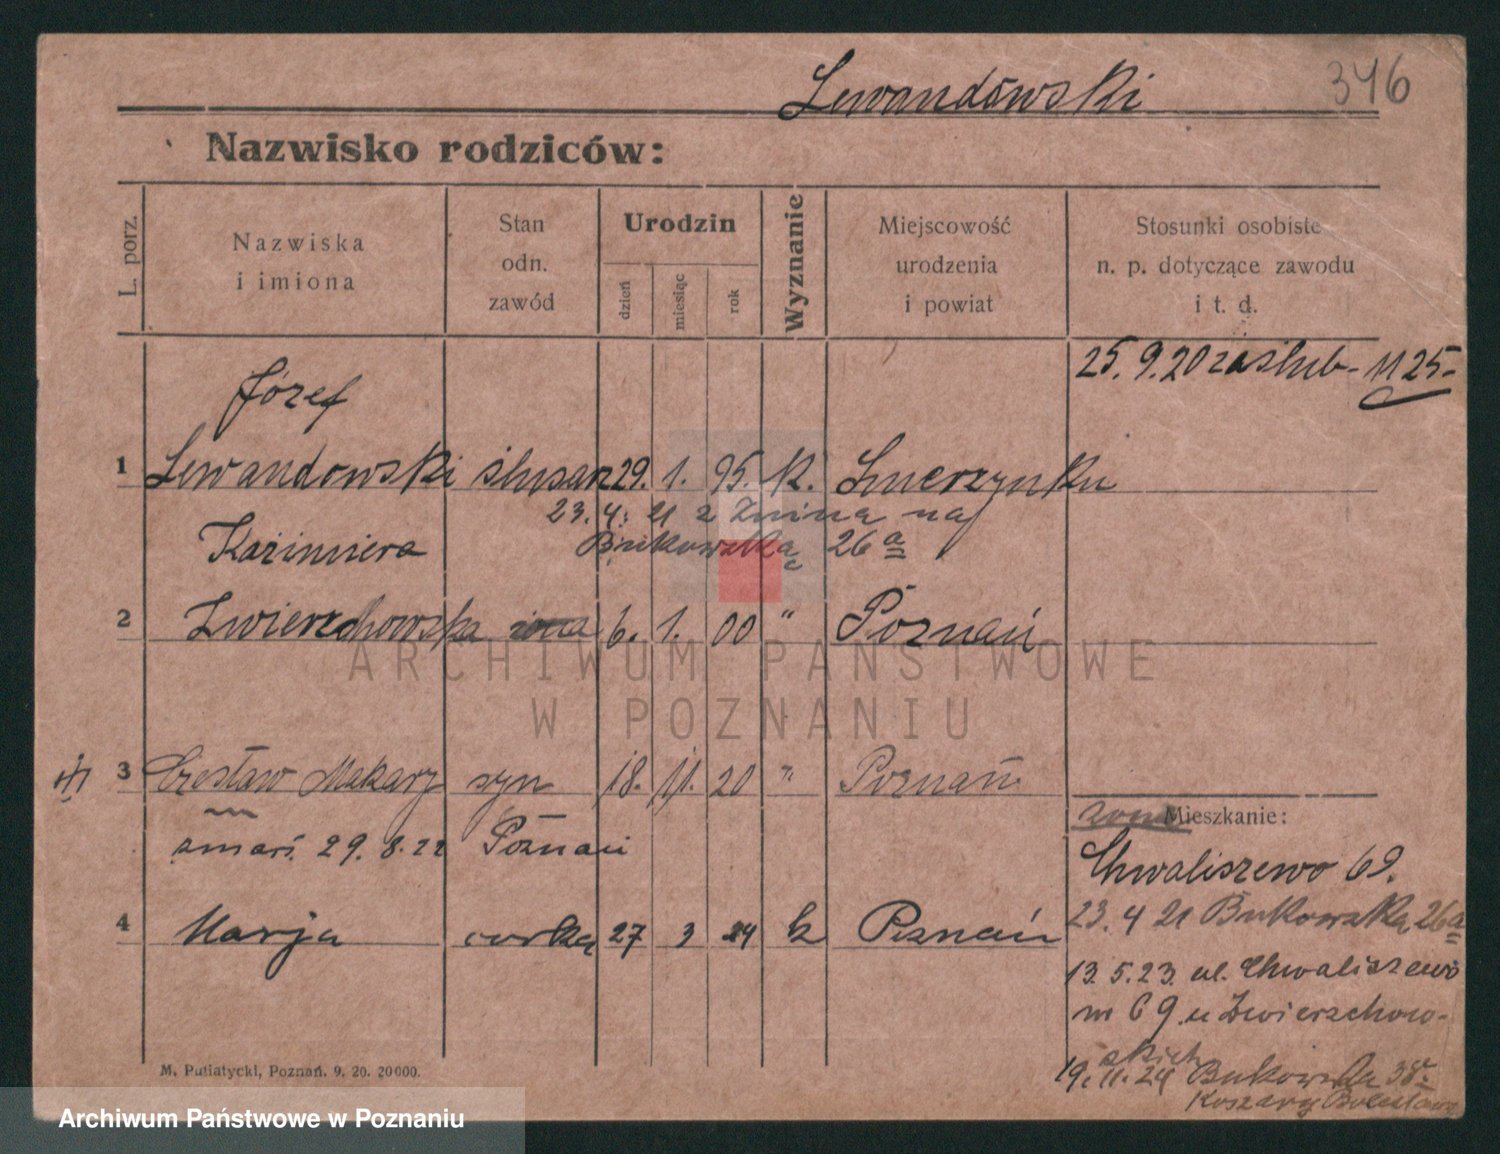 Lewandowski 346
Nazwisko rodziców:
L. porz.
Nazwiska
i imiona
Stan
odn.
zawód
Urodzin
dzień
miesiąc
rok
Wyznanie
Miejscowość
urodzenia
i powiat
Stosunki osobiste
n. p. dotyczące zawodu
i t. d.
25.9.20 zaślub - 1125-
Józef
1 Lewandowski ślusarz 29. 1. 95. k.
23.4. 21 z Żnina na
Kazimiera Bukowską 26a
2 Zwierzchowska żona 6. 1. 00 " Poznań
ARCHIWUM PAŃSTWOWE
W POZNANIU
3 Czesław Makary syn 18. 11. 20 " Poznań
zmarł 29.8.22 Poznań
4 Marja córka 27 3 24 k Poznań
Mieszkanie:
Chwaliszewo 69.
23.4 21 Bukowska 26a
13.5.23. ul. Chwaliszewo
m 69 u Zwierzchow-
skich
19.11.24 Bukowska 38
Koszary
M. Putiatycki, Poznań. 9. 20. 20000.
Archiwum Państwowe w Poznaniu